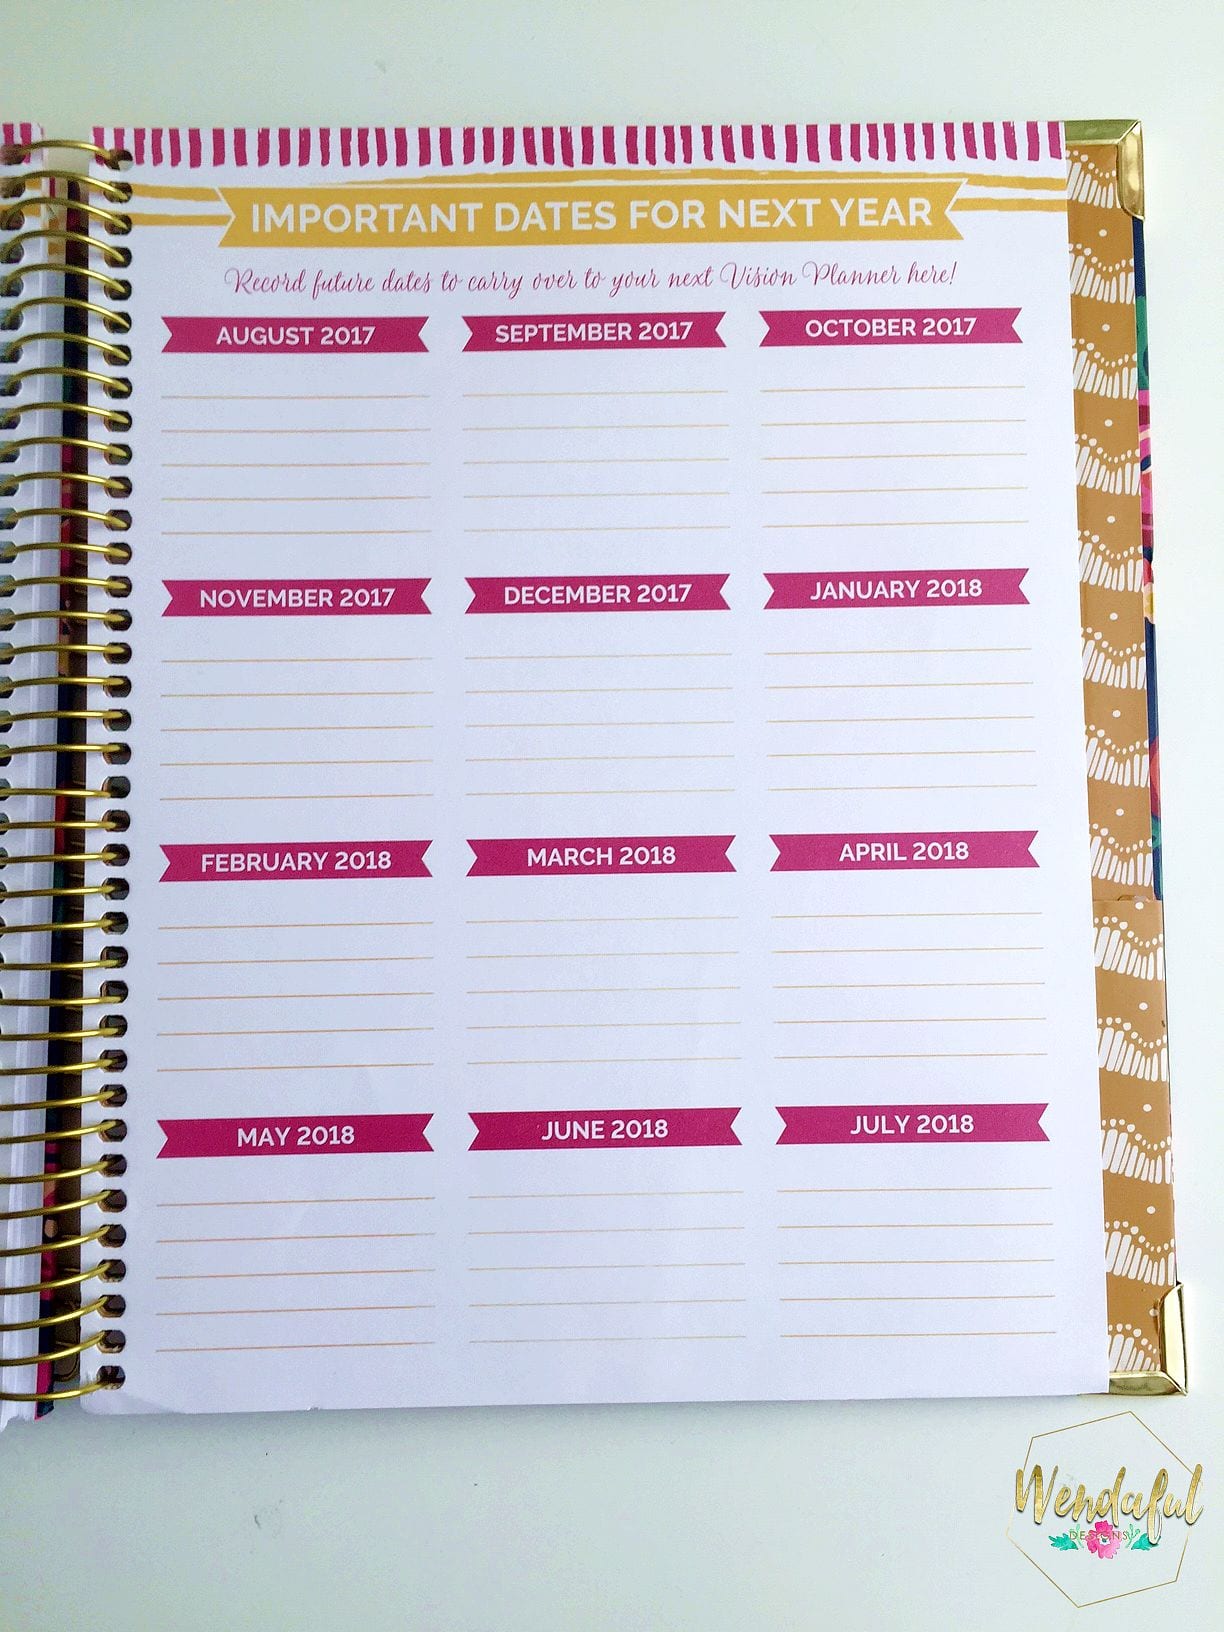 IMPORTANT DATES FOR NEXT YEAR
Record future dates to carry over to your next Vision Planner here!
AUGUST 2017 SEPTEMBER 2017 OCTOBER 2017
NOVEMBER 2017 DECEMBER 2017 JANUARY 2018
FEBRUARY 2018 MARCH 2018 APRIL 2018
MAY 2018 JUNE 2018 JULY 2018
Wendaful
DESIGNS